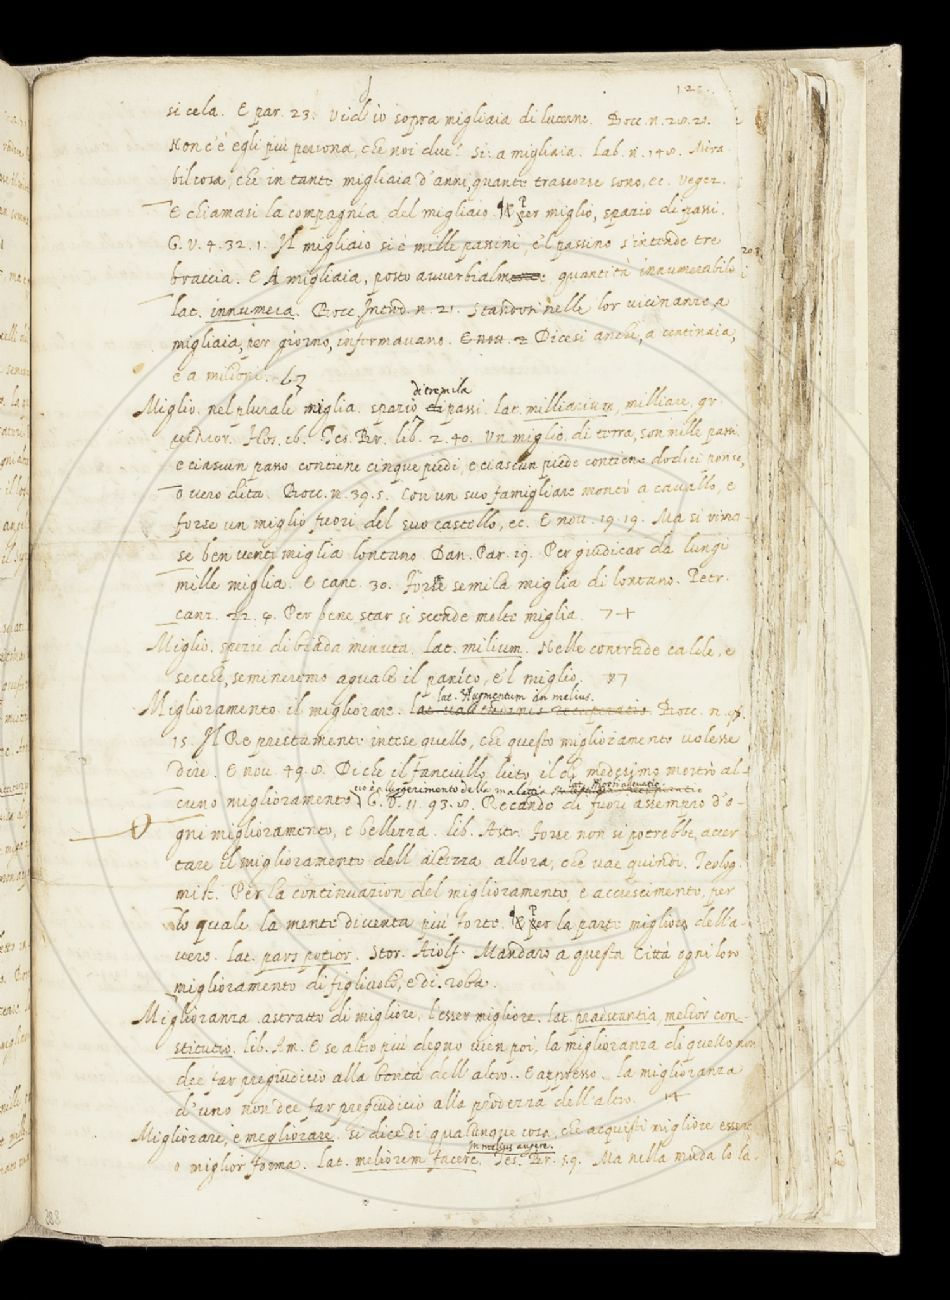 si cela. E par. 23. Vid' io sopra migliaia di lucerne. Bocc. n. 28. 21.
Non c'è egli piú persona, che noi due? Sí: a migliaia. Lab. n. 148. Mira
bil cosa, che in tante migliaia d'anni, quante trascorse sono, ec. Veget.
E chiamasi la compagnía del migliaio. & per miglio, spazio di passi.
G. V. 4. 32. 1. Il migliaio si è mille passini, e 'l passino s'intende tre
braccia. E A migliaia, posto avverbialm. quantità innumerabile
lat. innumera. Bocc. Introd. n. 21. Standosi nelle lor vicinanze, a
migliaia, per giorno, infermavano. Dicesi anche, a centinaia,
e a milioni.
di tremila
Miglio. nel plurale miglia. spazio di passi. Lat. milliarium, milliare, gr.
Tes. Br. lib. 2. 40. Un miglio di terra, son mille passi
e ciascun passo contiene cinque piedi, e ciascun piede contiene dodici
o vero dita. Bocc. n. 39. 5. Con un suo famigliare montò a cavallo, e
forse un miglio fuori del suo castello, ec. E nov. 19. 19. Ma sí vinci-
se ben venti miglia lontano. Dan. Par. 19. Per giudicar da lungi
mille miglia. E cant. 30. Forse semila miglia di lontano. Petr.
canz. 22. 4. Per bene star si scende molte miglia. 7 +
Miglio. spezie di biada minuta. Lat. milium. Nelle contrade calde, e
secche, semineremo aguale il panico, e 'l miglio.
lat. Augmentum in melius.
Miglioramento. il migliorare. Bocc. n.
15. Il Re prestamente intese quello, che questo miglioramento volesse
dire. E nov. 49. 8. Di che il fanciullo lieto, il dí medesimo mostrò al-
cioè alleggerimento della malattia
cuno miglioramento. G. V. 11. 93. 8. Recando di fuori assempro d'o-
gni miglioramento, e bellezza. lib. Astr. Forse non si potrebbe, accer
tare il miglioramento dell' altezza allora, che vae quindi. Teolog.
mist. Per la continuazion del miglioramento, e accrescimento, per
lo quale la mente diventa piú forte. & per la parte migliore della
vero. lat. pars potior. Stor. Aiolf. Mandaro a questa Città ogni loro
miglioramento di figliuoli, e di roba.
Miglioranza. astratto di migliore, l'esser migliore. lat. praestantia, melior con-
stitutio. lib. Am. E se altro piú degno vien poi, la miglioranza di quello non
dee far pregiudicio alla bontà dell' altro. E appresso. La miglioranza
d'uno non dee far pregiudicio alla prodezza dell' altro.
Migliorare, e megliorare. si dice di qualunque cosa, che acquisti migliore essere
in melius augere.
o miglior forma. Lat. meliorem facere. Tes. Br. 59. Ma nella muda lo la-